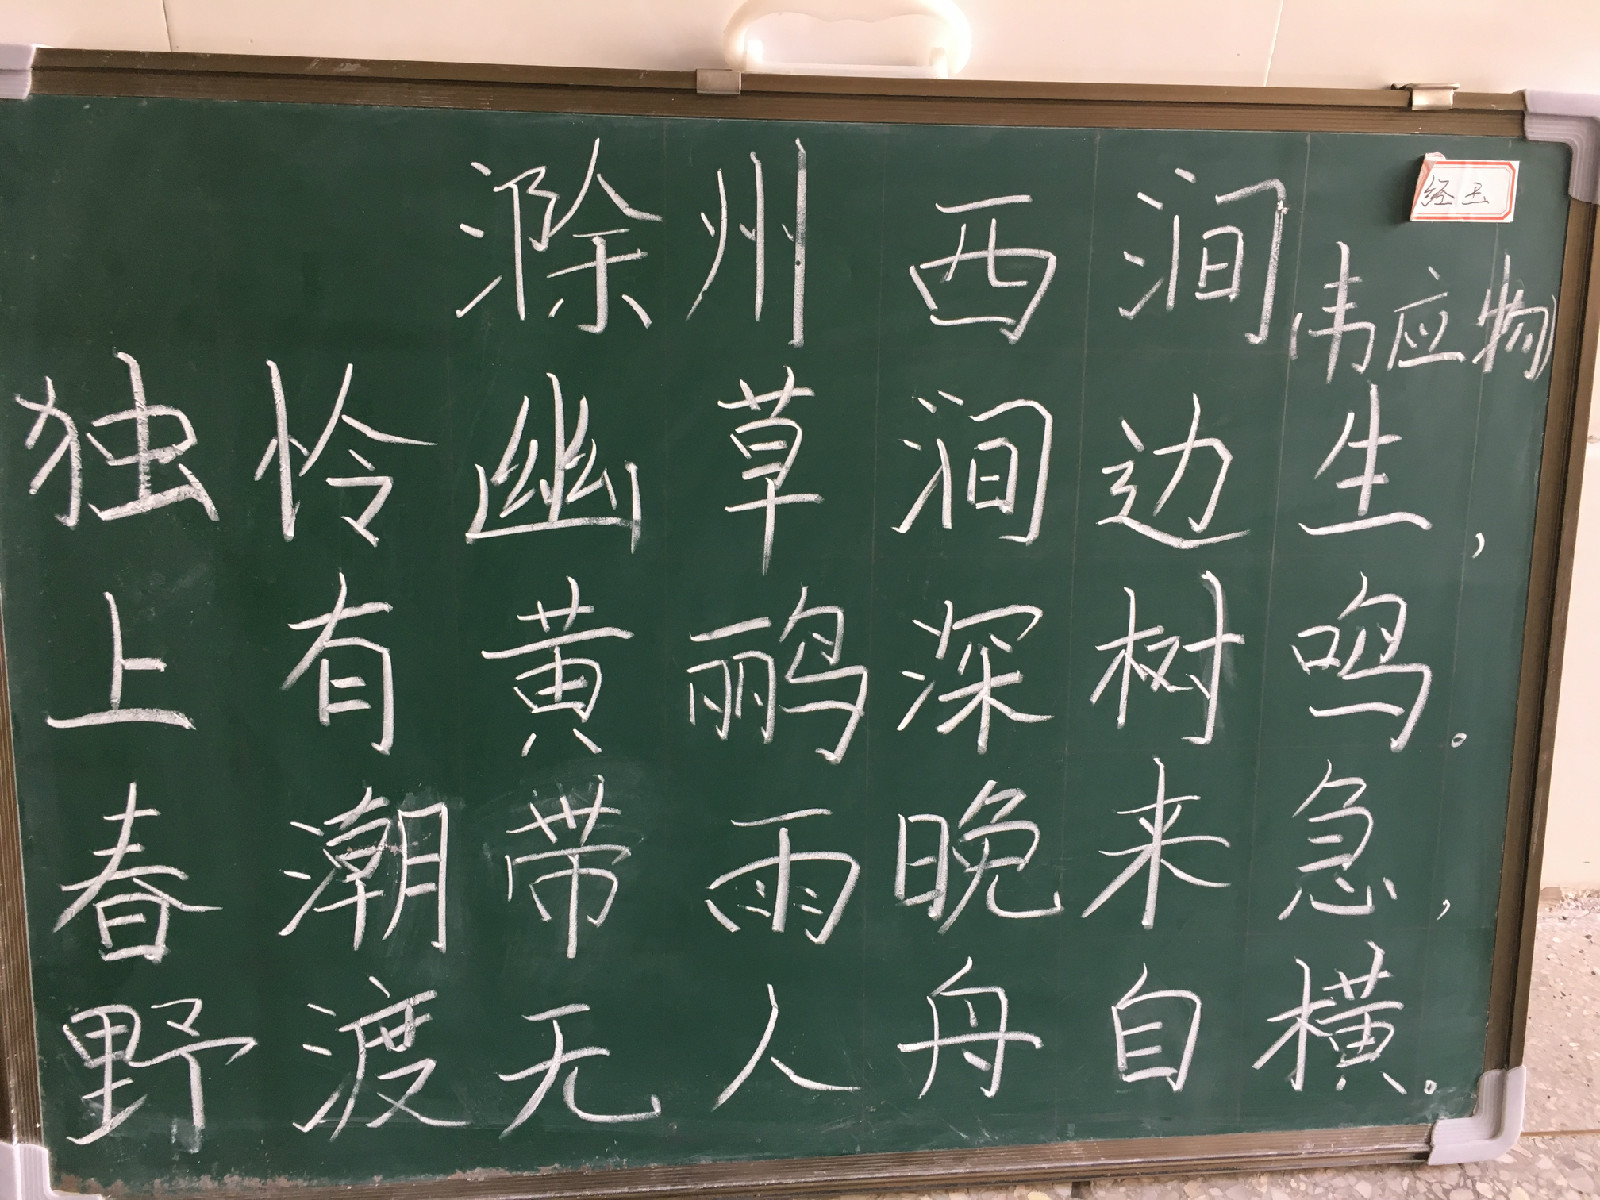 滁州西涧
(韦应物)
独怜幽草涧边生，
上有黄鹂深树鸣。
春潮带雨晚来急，
野渡无人舟自横。